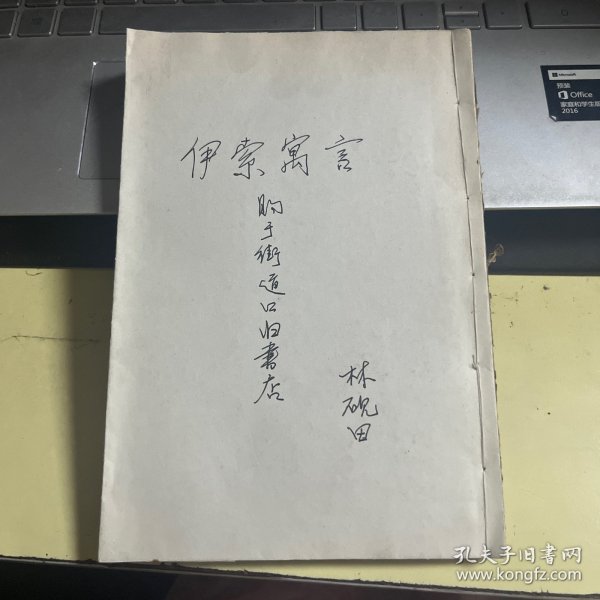 伊索寓言
购于街道口旧书店
林砚田
Microsoft
预装
Office
家庭和学生版
2016
孔夫子旧书网
www.kongfz.com